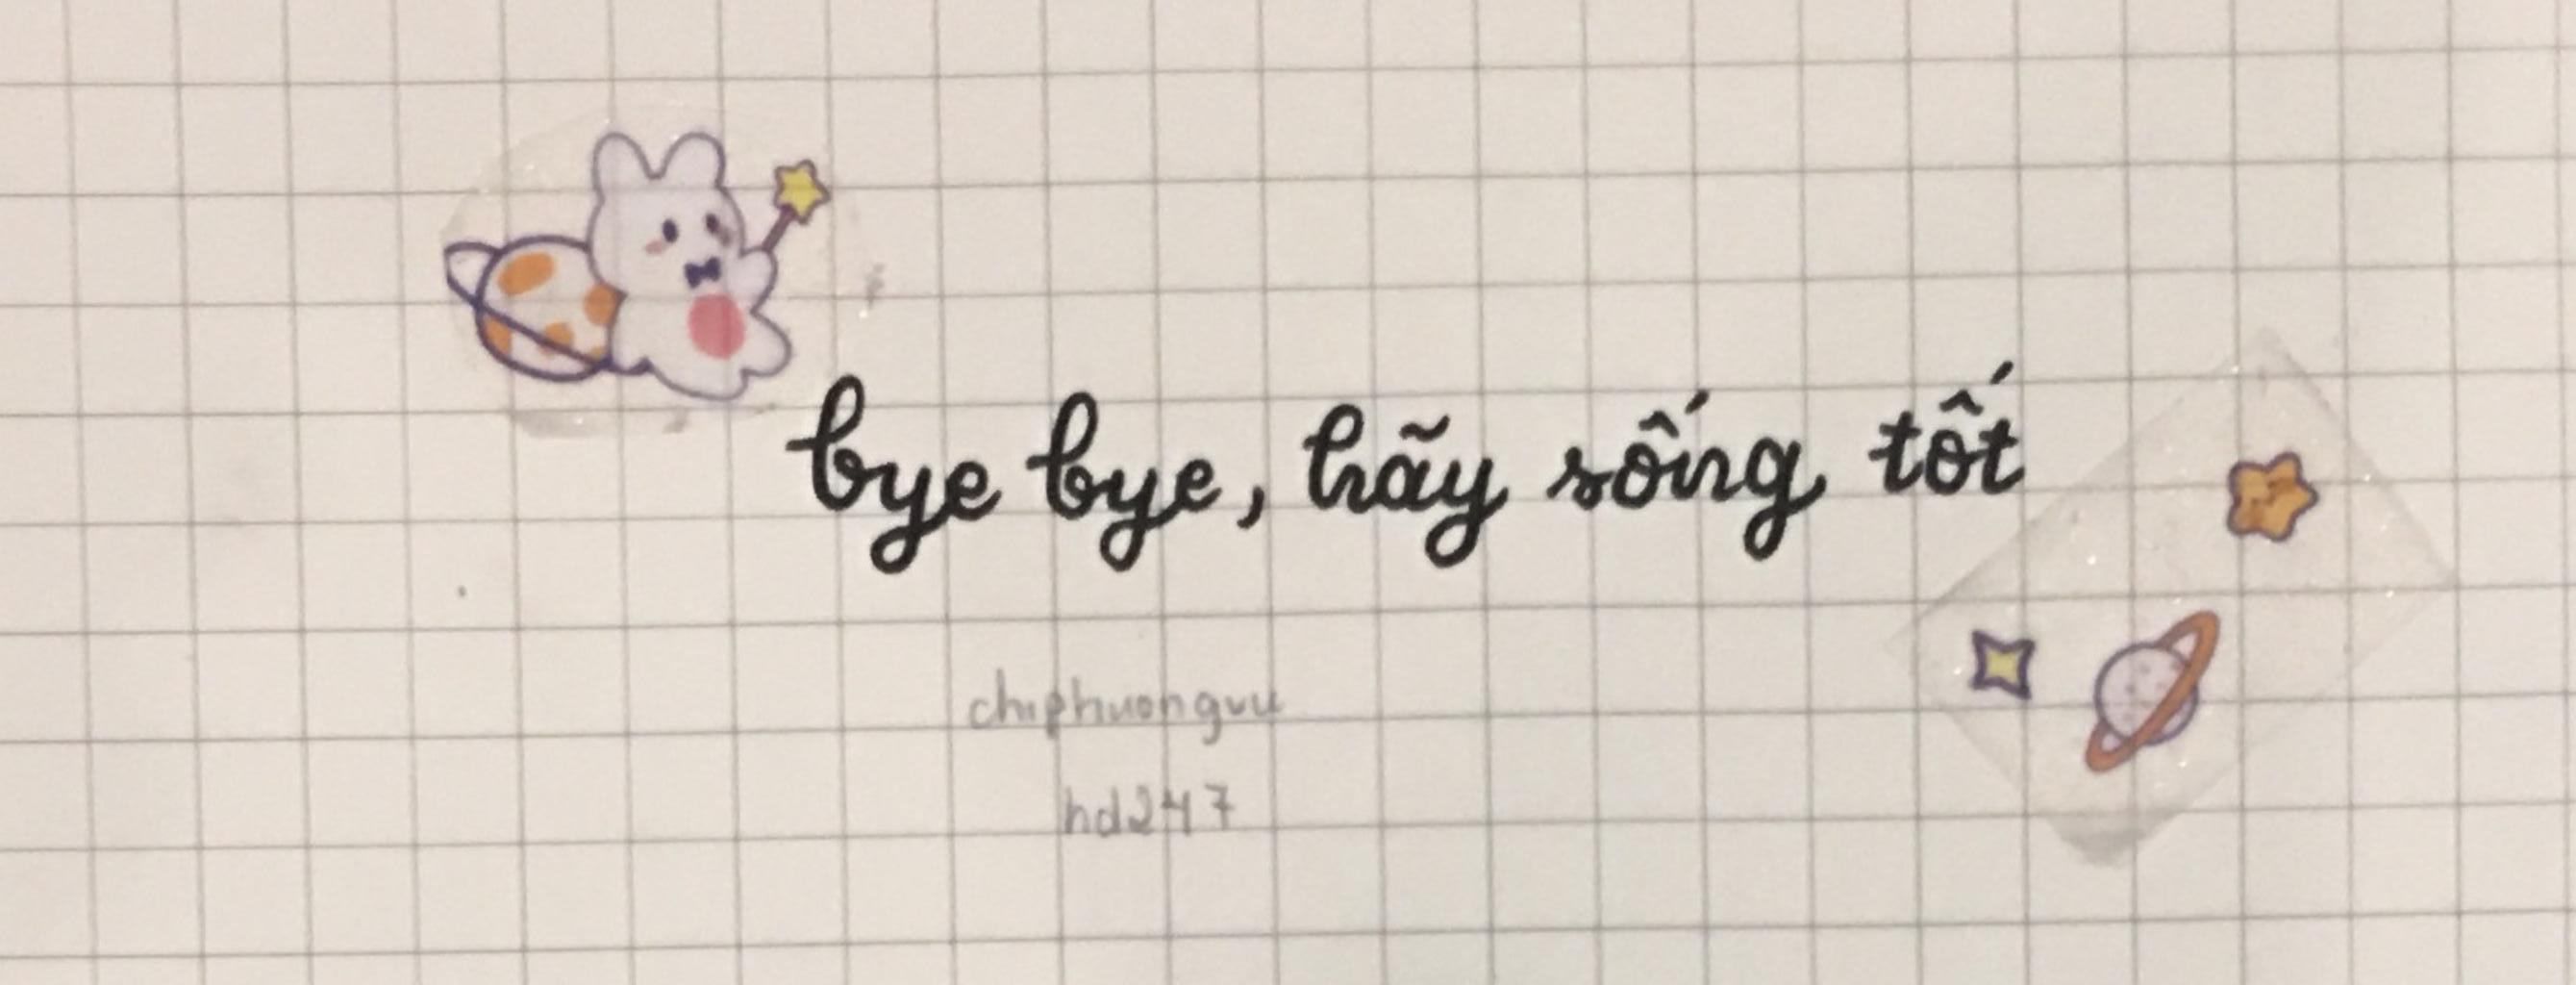 bye bye, hãy sống tốt
chiphuongvu
hd247